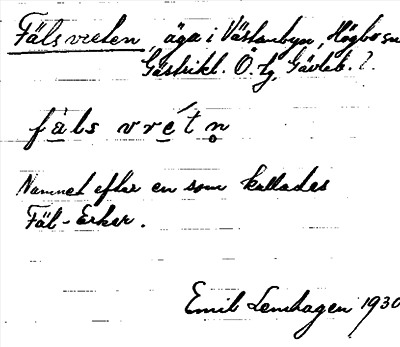 Fälsvreten, äga i Västanbyn, Högbo sn
Gästrikl. Ö. tg, Gävleb. l.
fàls vrét n̥
Namnet efter en som kallades
Fäl-Erker.
Emil Lenhagen 1930